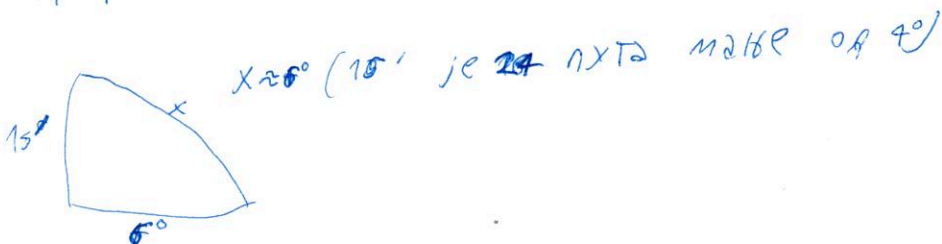 x≈6° (15' je 24 пута мање од 4°)
x
15'
6°